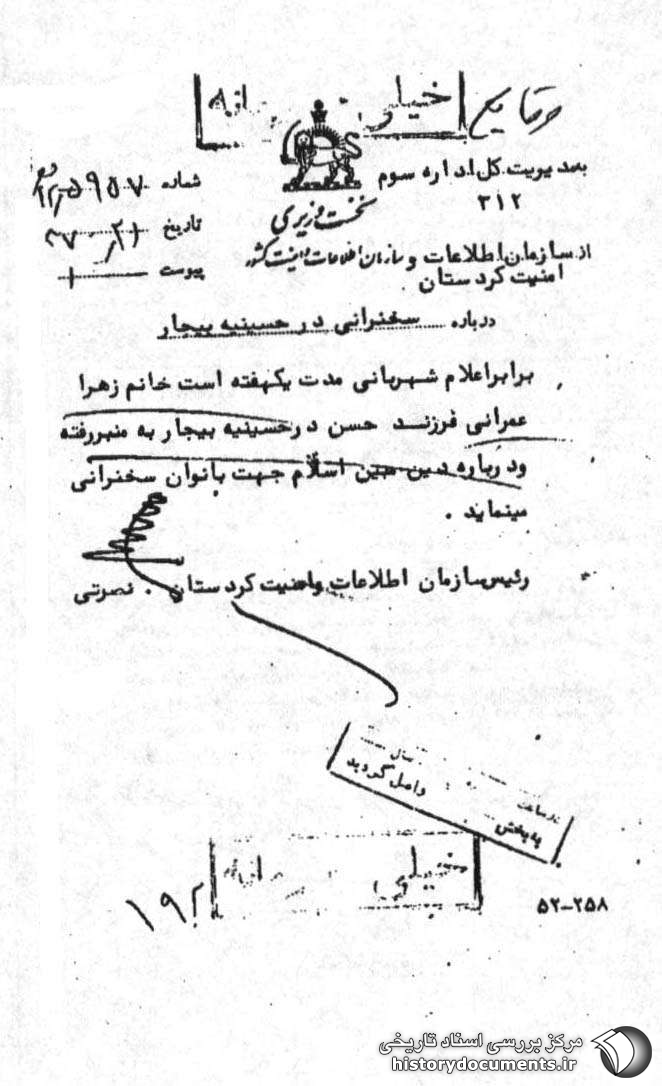 خیلی محرمانه
بمدیریت کل اداره سوم
۳۱۲
نخست وزیری
سازمان اطلاعات و امنیت کشور
شماره
تاریخ
پیوست
از سازمان اطلاعات و
امنیت کردستان
درباره سخنرانی در حسینیه بیجار
برابر اعلام شهربانی مدت یکهفته است خانم زهرا
عمرانی فرزند حسن در حسینیه بیجار به منبر رفته
و درباره دین مبین اسلام جهت بانوان سخنرانی
مینماید .
رئیس سازمان اطلاعات و امنیت کردستان . نصرتی
سال
واصل گردید
در ساعت
به بخش
خیلی محرمانه
۵۲-۲۵۸
مرکز بررسی اسناد تاریخی
historydocuments.ir